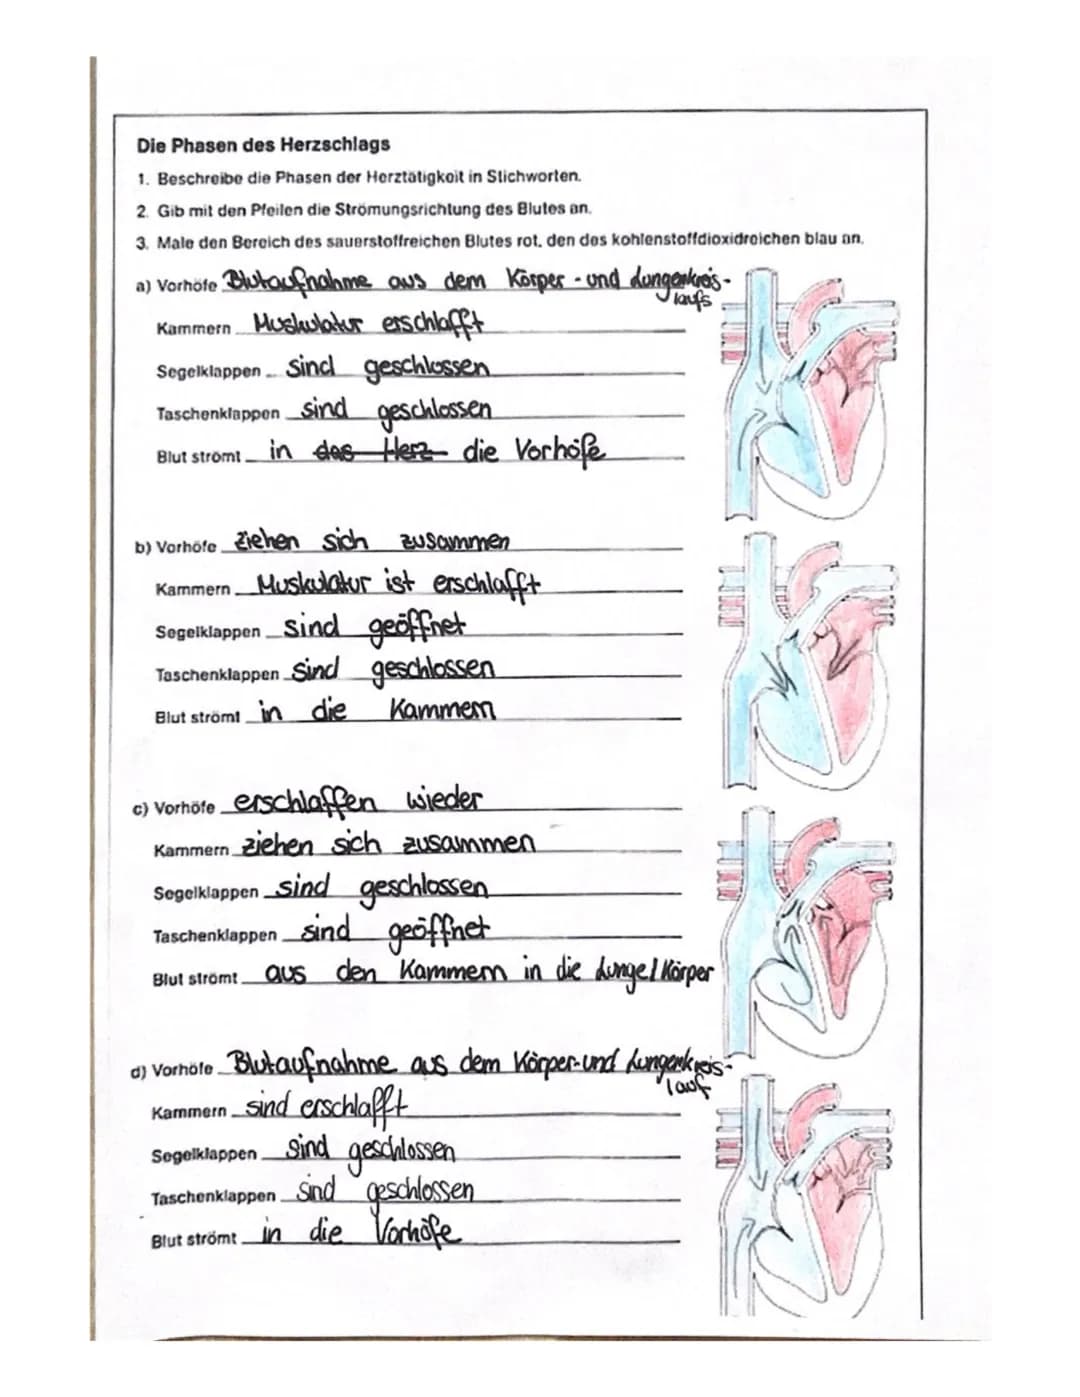 Die Phasen des Herzschlags
1. Beschreibe die Phasen der Herztätigkeit in Stichworten.
2. Gib mit den Pfeilen die Strömungsrichtung des Blutes an.
3. Male den Bereich des sauerstoffreichen Blutes rot, den des kohlenstoffdioxidreichen blau an.
a) Vorhöfe Blutaufnahme aus dem Körper-und Lungenkreis-
laufs
Kammern Muskulatur erschlafft
Segelklappen sind geschlossen
Taschenklappen sind geschlossen
Blut strömt in das Herz die Vorhöfe
b) Vorhöfe ziehen sich zusammen
Kammern Muskulatur ist erschlafft
Segelklappen sind geöffnet
Taschenklappen sind geschlossen
Blut strömt in die Kammern
c) Vorhöfe erschlaffen wieder
Kammern ziehen sich zusammen
Segelklappen sind geschlossen
Taschenklappen sind geöffnet
Blut strömt aus den Kammern in die Lunge/Körper
d) Vorhöfe Blutaufnahme aus dem Körper-und Lungenkreis-
lauf
Kammern sind erschlafft
Segelklappen sind geschlossen
Taschenklappen sind geschlossen
Blut strömt in die Vorhöfe